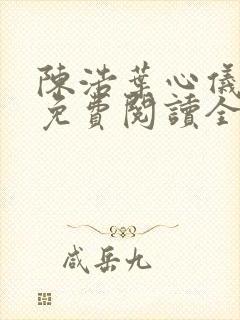 陳浩葉心儀
免費閱讀全
咸岳九